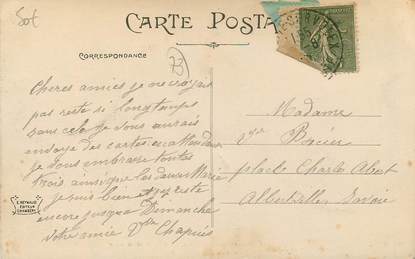 Sot
CARTE POSTA
CORRESPONDANCE
Cheres amies je ne croyais
pas reste si longtemps
sans cela je vous aurais
envoye des cartes
je vous embrasse toutes
trois ainsi que les deux Marie
je suis bien et reste
encore jusqua Dimanche
votre amie Vve Chapuis
Madame
Vve
place Charles Albert
Albertville Savoie
L. REYNAUD
EDITEUR
CHAMBERY